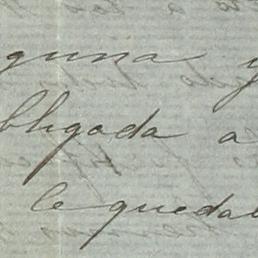 guna y
bligada a
le quedab